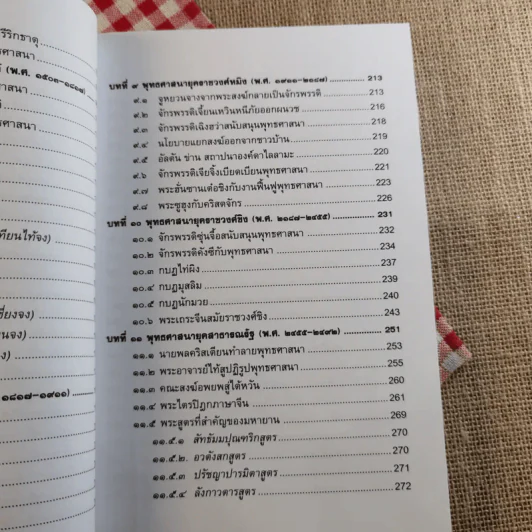 รีริกธาตุ
ศาสนา
(พ.ศ. ๑๕๐๓-๑๘๑๙)
ศาสนา
ศาสนา
เทียนไท้จง)
๑๘๑๗-๑๙๑๑)
บทที่ ๙ พุทธศาสนายุคราชวงศ์หมิง (พ.ศ. ๑๙๑๑-๒๑๘๗) 213
๙.๑ จูหยวนจางจากพระสงฆ์กลายเป็นจักรพรรดิ 213
๙.๒ จักรพรรดิเจี้ยนเหวินหนีภัยออกผนวช 216
๙.๓ จักรพรรดิเฉิงฮว่าสนับสนุนพุทธศาสนา 218
๙.๔ นโยบายแยกสงฆ์ออกจากชาวบ้าน 219
๙.๕ อัลตัน ข่าน สถาปนาองค์ดาไลลามะ 220
๙.๖ จักรพรรดิเจียจิ้งเบียดเบียนพุทธศาสนา 221
๙.๗ พระฮั่นซานเต๋อชิงกับงานฟื้นฟูพุทธศาสนา 223
๙.๘ พระชูฮุงกับคริสตจักร 226
บทที่ ๑๐ พุทธศาสนายุคราชวงศ์ชิง (พ.ศ. ๒๑๘๗-๒๔๕๕) 231
๑๐.๑ จักรพรรดิซุ่นจื้อสนับสนุนพุทธศาสนา 232
๑๐.๒ จักรพรรดิคังซีกับพุทธศาสนา 234
๑๐.๓ กบฏไท่ผิง 237
๑๐.๔ กบฏมุสลิม 239
๑๐.๕ กบฏนักมวย 240
๑๐.๖ พระเถระจีนสมัยราชวงศ์ชิง 243
บทที่ ๑๑ พุทธศาสนายุคสาธารณรัฐ (พ.ศ. ๒๔๕๕-๒๔๙๒) 251
๑๑.๑ นายพลคริสเตียนทำลายพุทธศาสนา 253
๑๑.๒ พระอาจารย์ไท้สูปฏิรูปพุทธศาสนา 255
๑๑.๓ คณะสงฆ์อพยพสู่ไต้หวัน 260
๑๑.๔ พระไตรปิฎกภาษาจีน 261
๑๑.๕ พระสูตรที่สำคัญของมหายาน 269
๑๑.๕.๑ สัทธัมมปุณฑริกสูตร 270
๑๑.๕.๒. อวตังสกสูตร 270
๑๑.๕.๓ ปรัชญาปารมิตาสูตร 271
๑๑.๕.๔ ลังกาวตารสูตร 272